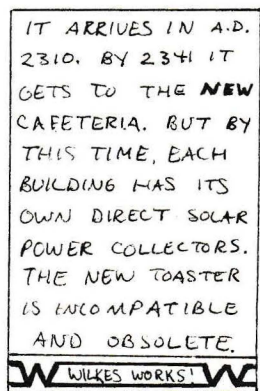 IT ARRIVES IN A.D.
2310. BY 2341 IT
GETS TO THE NEW
CAFETERIA. BUT BY
THIS TIME, EACH
BUILDING HAS ITS
OWN DIRECT SOLAR
POWER COLLECTORS.
THE NEW TOASTER
IS INCOMPATIBLE
AND OBSOLETE.
W WILKES WORKS! W